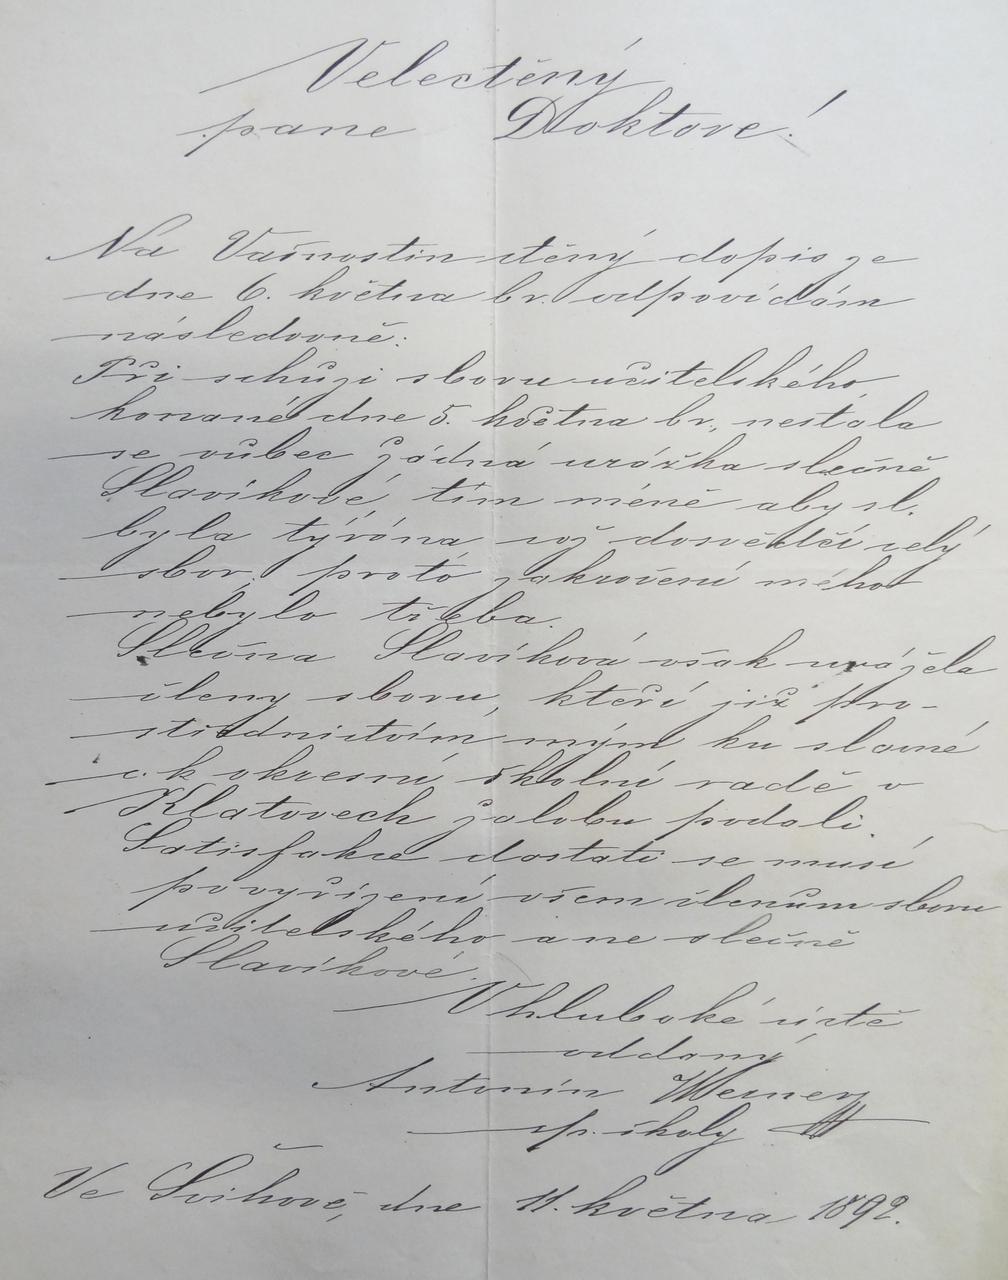 Velectěný
pane Doktore!
Na Vašnostin ctěný dopis ze
dne 6. května br. odpovídám
následovně:
Při schůzi sboru učitelského,
konané dne 5. května br., nestala
se vůbec žádná urážka slečně
Slavíkové, tím méně aby sl.
byla týrána, což dosvědčí celý
sbor, proto zakročení mého
nebylo třeba.
Slečna Slavíkova však urážela
členy sboru, kteří již pro-
střednictvím mým ku slavné
c. k. okresní školní radě v
Klatovech žalobu podali.
Satisfakce dostati se musí
po vyřízení všem členům sboru
učitelského a ne slečně
Slavíkové.
V hluboké úctě
oddaný
Antonín Werner
sp. školy
Ve Švihově, dne 11. května 1892.